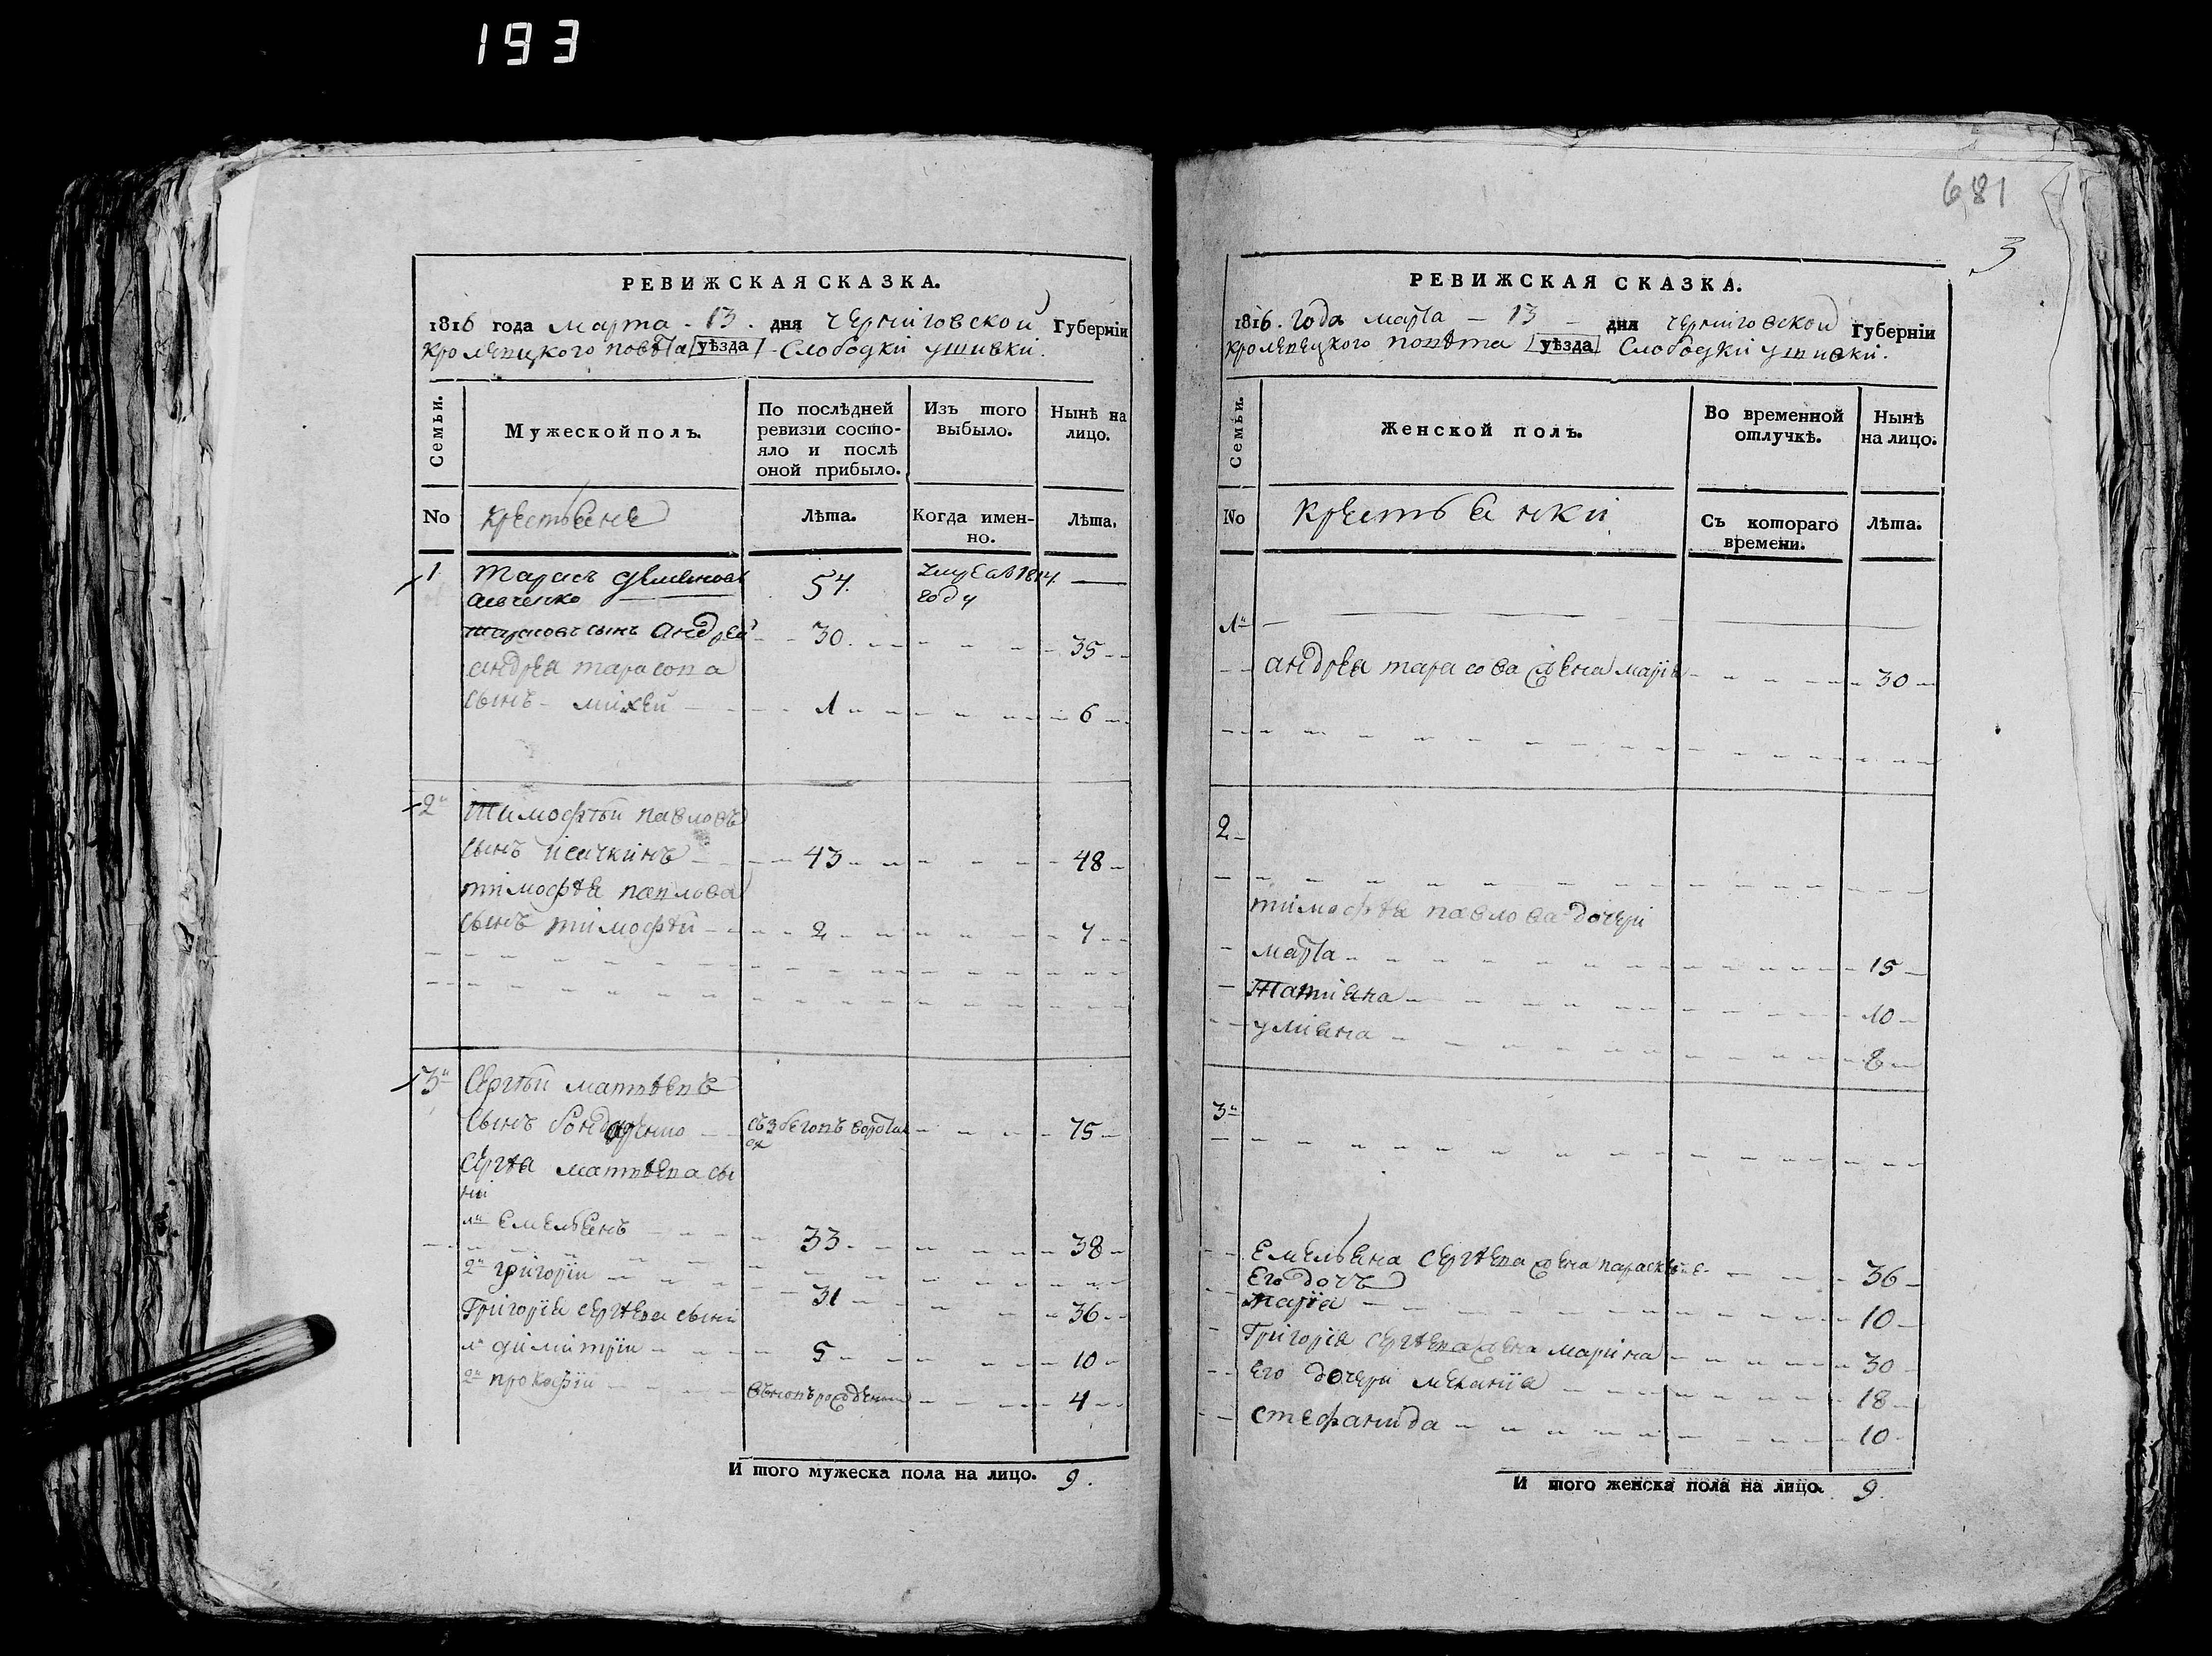 193
681
3
РЕВИЖСКАЯ СКАЗКА.
1816 года марта 13. дня черниговской Губернїи
кролевецкого повѣта уѣзда Слободки ушивки.
Семьи.
Мужеской полъ.
По послѣдней ревизїи состо-
яло и послѣ
оной прибыло.
Изъ того
выбыло.
Нынѣ на
лицо.
No
крестьяне
Лѣта.
Когда имен-
но.
Лѣта.
1 тарасъ 54. 1814
году
тарасовъ сынъ андрей 30. 35
андрея тарасова
сынъ михей 1 6
2 тимофѣй павловъ
сынъ исичкинъ 43 48
тимофѣя павлова
сынъ тимофѣй 2 7
3 Сергѣй матвѣевъ
сынъ бондаренко 75
сергѣя матвѣева сы
ни
1 емельянъ 33 38
2 григорїи 31 36
григорїя сергѣева сыни
1 димитрїи 5 10
2 прокофїи вновь рожденъ 4
И того мужеска пола на лицо. 9.
РЕВИЖСКАЯ СКАЗКА.
1816. года марта 13 дня черниговской Губернїи
кролевецкого повѣта уѣзда Слободки ушивки.
Семьи.
Женской полъ.
Во временной
отлучкѣ.
Нынѣ
на лицо.
No
крестьянки
Съ котораго
времени.
Лѣта.
1
андрея тарасова жена марїя 30
2
тимофѣя павлова дочери
марта 15
татияна 10
улияна 8
3
емельяна сергѣева жена параскевїя 36
его дочъ
марїя 10
григорїя сергѣева жена марина 30
его дочери меланїя 18
стефанида 10
И того женска пола на лицо. 9.